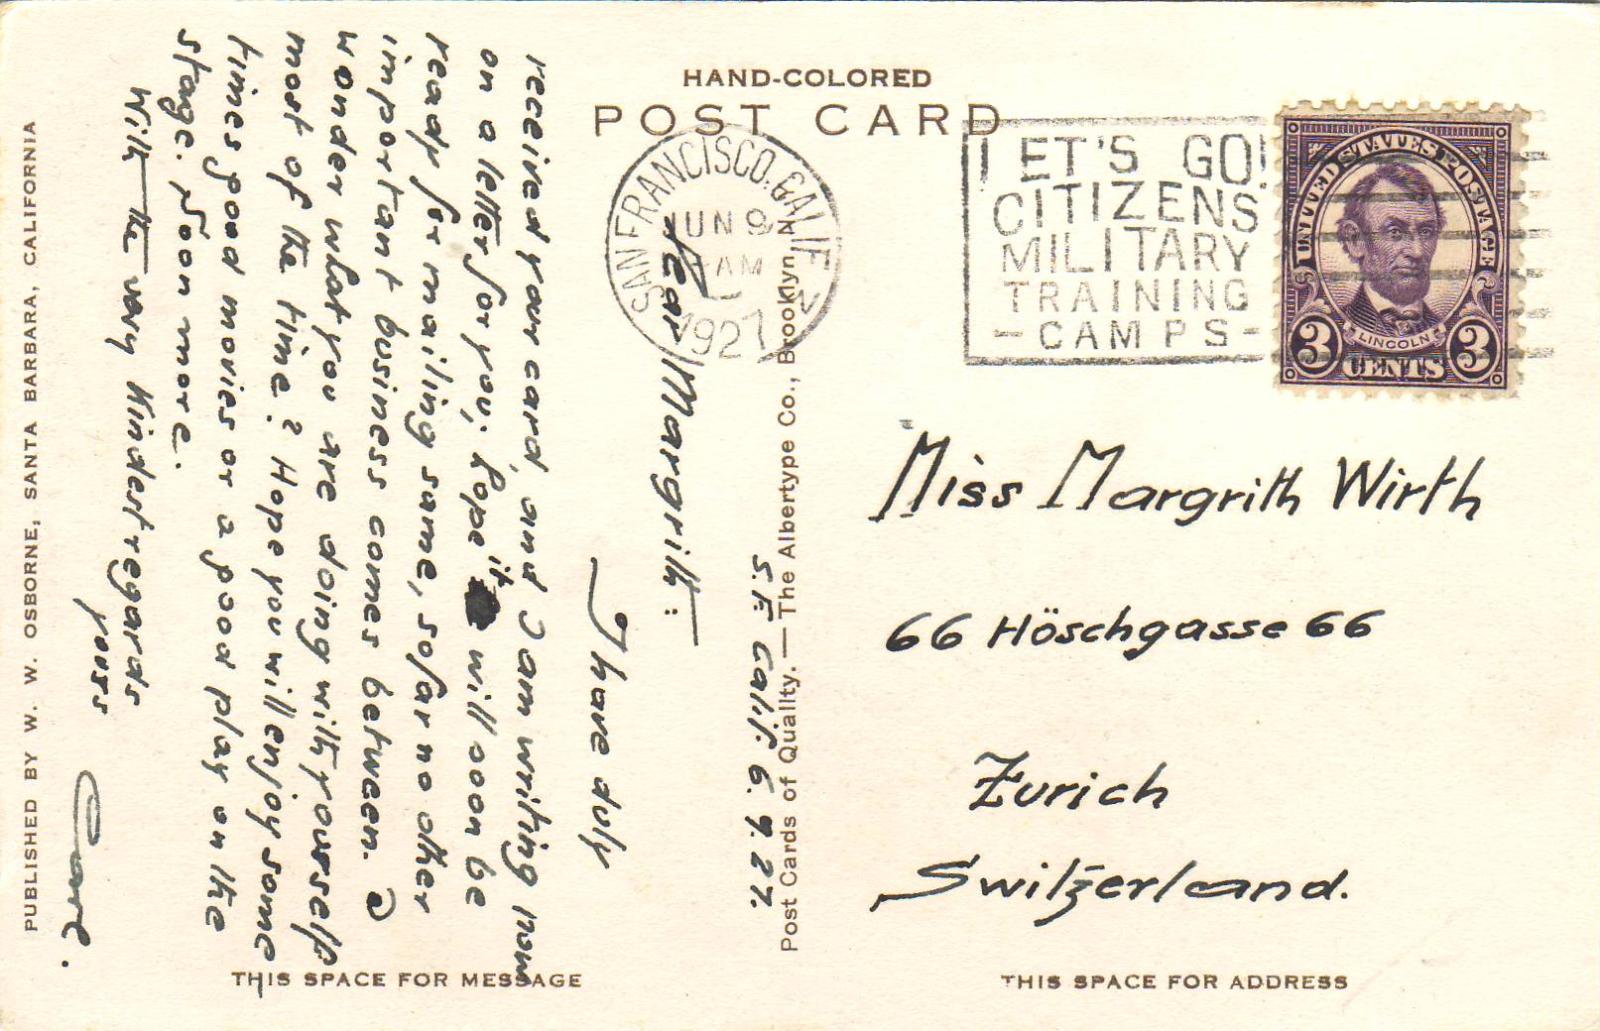 HAND-COLORED
POST CARD
SAN FRANCISCO, CALIF.
JUN 9
AM
1927
LET'S GO!
CITIZENS
MILITARY
TRAINING
- CAMPS -
UNITED STATES POSTAGE
LINCOLN
3 CENTS 3
S.F. Calif. 6. 9. 27.
Dear Margrith:
I have duly
received your card, and I am writing now
on a letter for you; hope it will soon be
ready for mailing same, so far no other
important business comes between. I
wonder what you are doing with yourself
most of the time? Hope you will enjoy some
times good movies or a good play on the
stage. Soon more.
With the very kindest regards
yours
Miss Margrith Wirth
66 Höschgasse 66
Zurich
Switzerland.
Post Cards of Quality. — The Albertype Co., Brooklyn, N.
PUBLISHED BY W. W. OSBORNE, SANTA BARBARA, CALIFORNIA
THIS SPACE FOR MESSAGE
THIS SPACE FOR ADDRESS